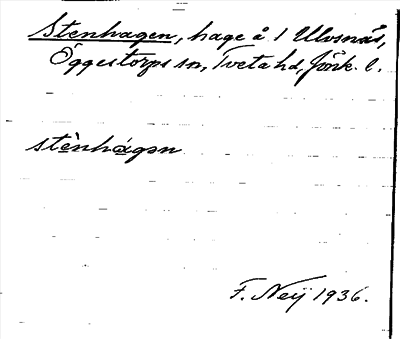 Stenhagen, hage å 1 Ulvsnäs,
Öggestorps sn, Tveta hd, Jönk. l.
stènhágən
F. Neij 1936.